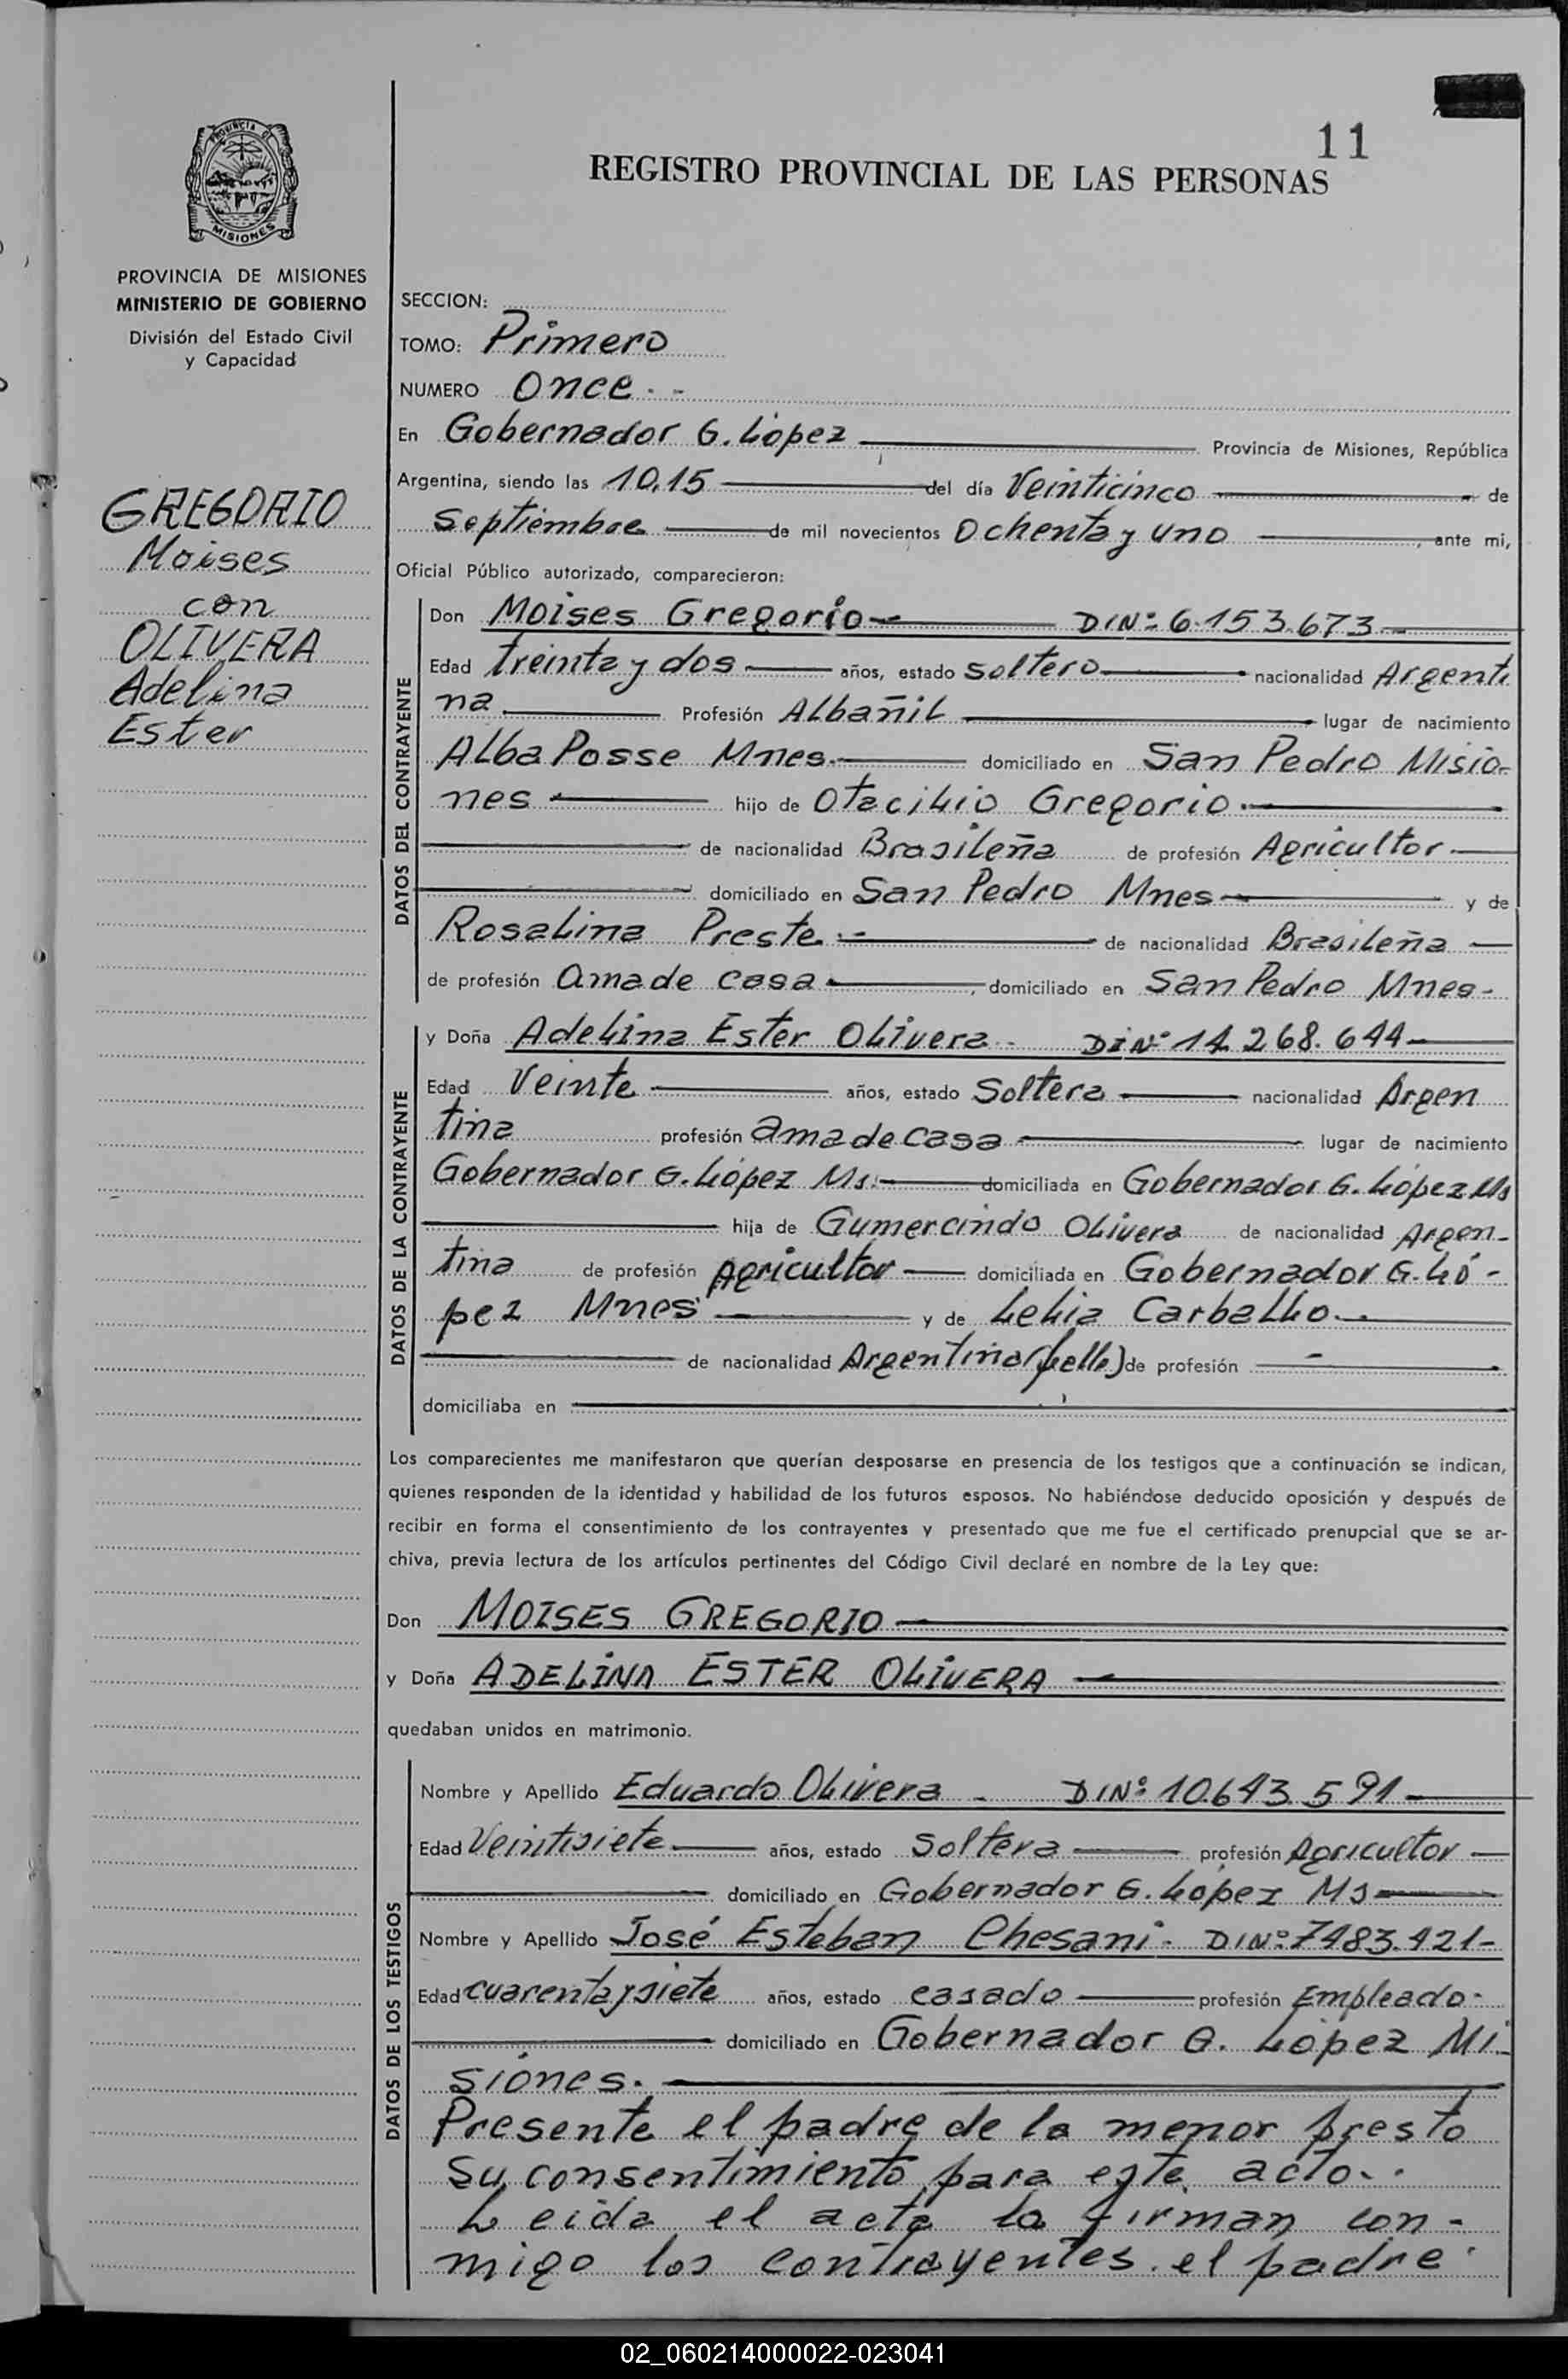 11
REGISTRO PROVINCIAL DE LAS PERSONAS
PROVINCIA DE
MISIONES
PROVINCIA DE MISIONES
MINISTERIO DE GOBIERNO
División del Estado Civil
y Capacidad
GREGORIO
Moises
con
OLIVERA
Adelina
Ester
SECCION:
TOMO: Primero
NUMERO Once.-
En Gobernador G. López Provincia de Misiones, República
Argentina, siendo las 10,15 del día Veinticinco de
Septiembre de mil novecientos Ochenta y uno, ante mi,
Oficial Público autorizado, comparecieron:
DATOS DEL CONTRAYENTE
Don Moises Gregorio DINº 6.153.673
Edad treinta y dos años, estado soltero nacionalidad Argenti
na Profesión Albañil lugar de nacimiento
Alba Posse Mnes. domiciliado en San Pedro Misio-
nes hijo de Otacilio Gregorio.
de nacionalidad Brasileña de profesión Agricultor
domiciliado en San Pedro Mnes y de
Rosalina Preste de nacionalidad Brasileña
de profesión ama de casa, domiciliado en San Pedro Mnes-
DATOS DE LA CONTRAYENTE
y Doña Adelina Ester Olivera DINº 14.268.644
Edad Veinte años, estado Soltera nacionalidad Argen
tina profesión ama de casa lugar de nacimiento
Gobernador G. López Ms. domiciliada en Gobernador G. López Ms
hija de Gumercindo Olivera de nacionalidad Argen-
tina de profesión Agricultor domiciliada en Gobernador G. Ló-
pez Mnes y de Lelia Carballo
de nacionalidad Argentina de profesión -
domiciliaba en
Los comparecientes me manifestaron que querían desposarse en presencia de los testigos que a continuación se indican,
quienes responden de la identidad y habilidad de los futuros esposos. No habiéndose deducido oposición y después de
recibir en forma el consentimiento de los contrayentes y presentado que me fue el certificado prenupcial que se ar-
chiva, previa lectura de los artículos pertinentes del Código Civil declaré en nombre de la Ley que:
Don MOISES GREGORIO
y Doña ADELINA ESTER OLIVERA
quedaban unidos en matrimonio.
DATOS DE LOS TESTIGOS
Nombre y Apellido Eduardo Olivera - DINº 10.643.591
Edad Veintisiete años, estado soltera profesión Agricultor
domiciliado en Gobernador G. López Ms
Nombre y Apellido José Esteban Chesani. DINº 7483.421-
Edad cuarenta y siete años, estado casado profesión Empleado.
domiciliado en Gobernador G. López Mi
siones.
Presente el padre de la menor presto
su consentimiento para este acto.
Leida el acta la firman con-
migo los contrayentes. el padre
02_060214000022-023041